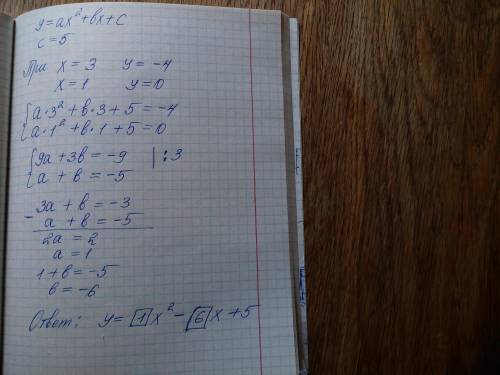 y = ax² + bx + c
c = 5
При x = 3 y = -4
x = 1 y = 0
{ a·3² + b·3 + 5 = -4
{ a·1² + b·1 + 5 = 0
{ 9a + 3b = -9 | : 3
{ a + b = -5
3a + b = -3
- a + b = -5
2a = 2
a = 1
1 + b = -5
b = -6
Ответ: y = [1]x² - [6]x + 5